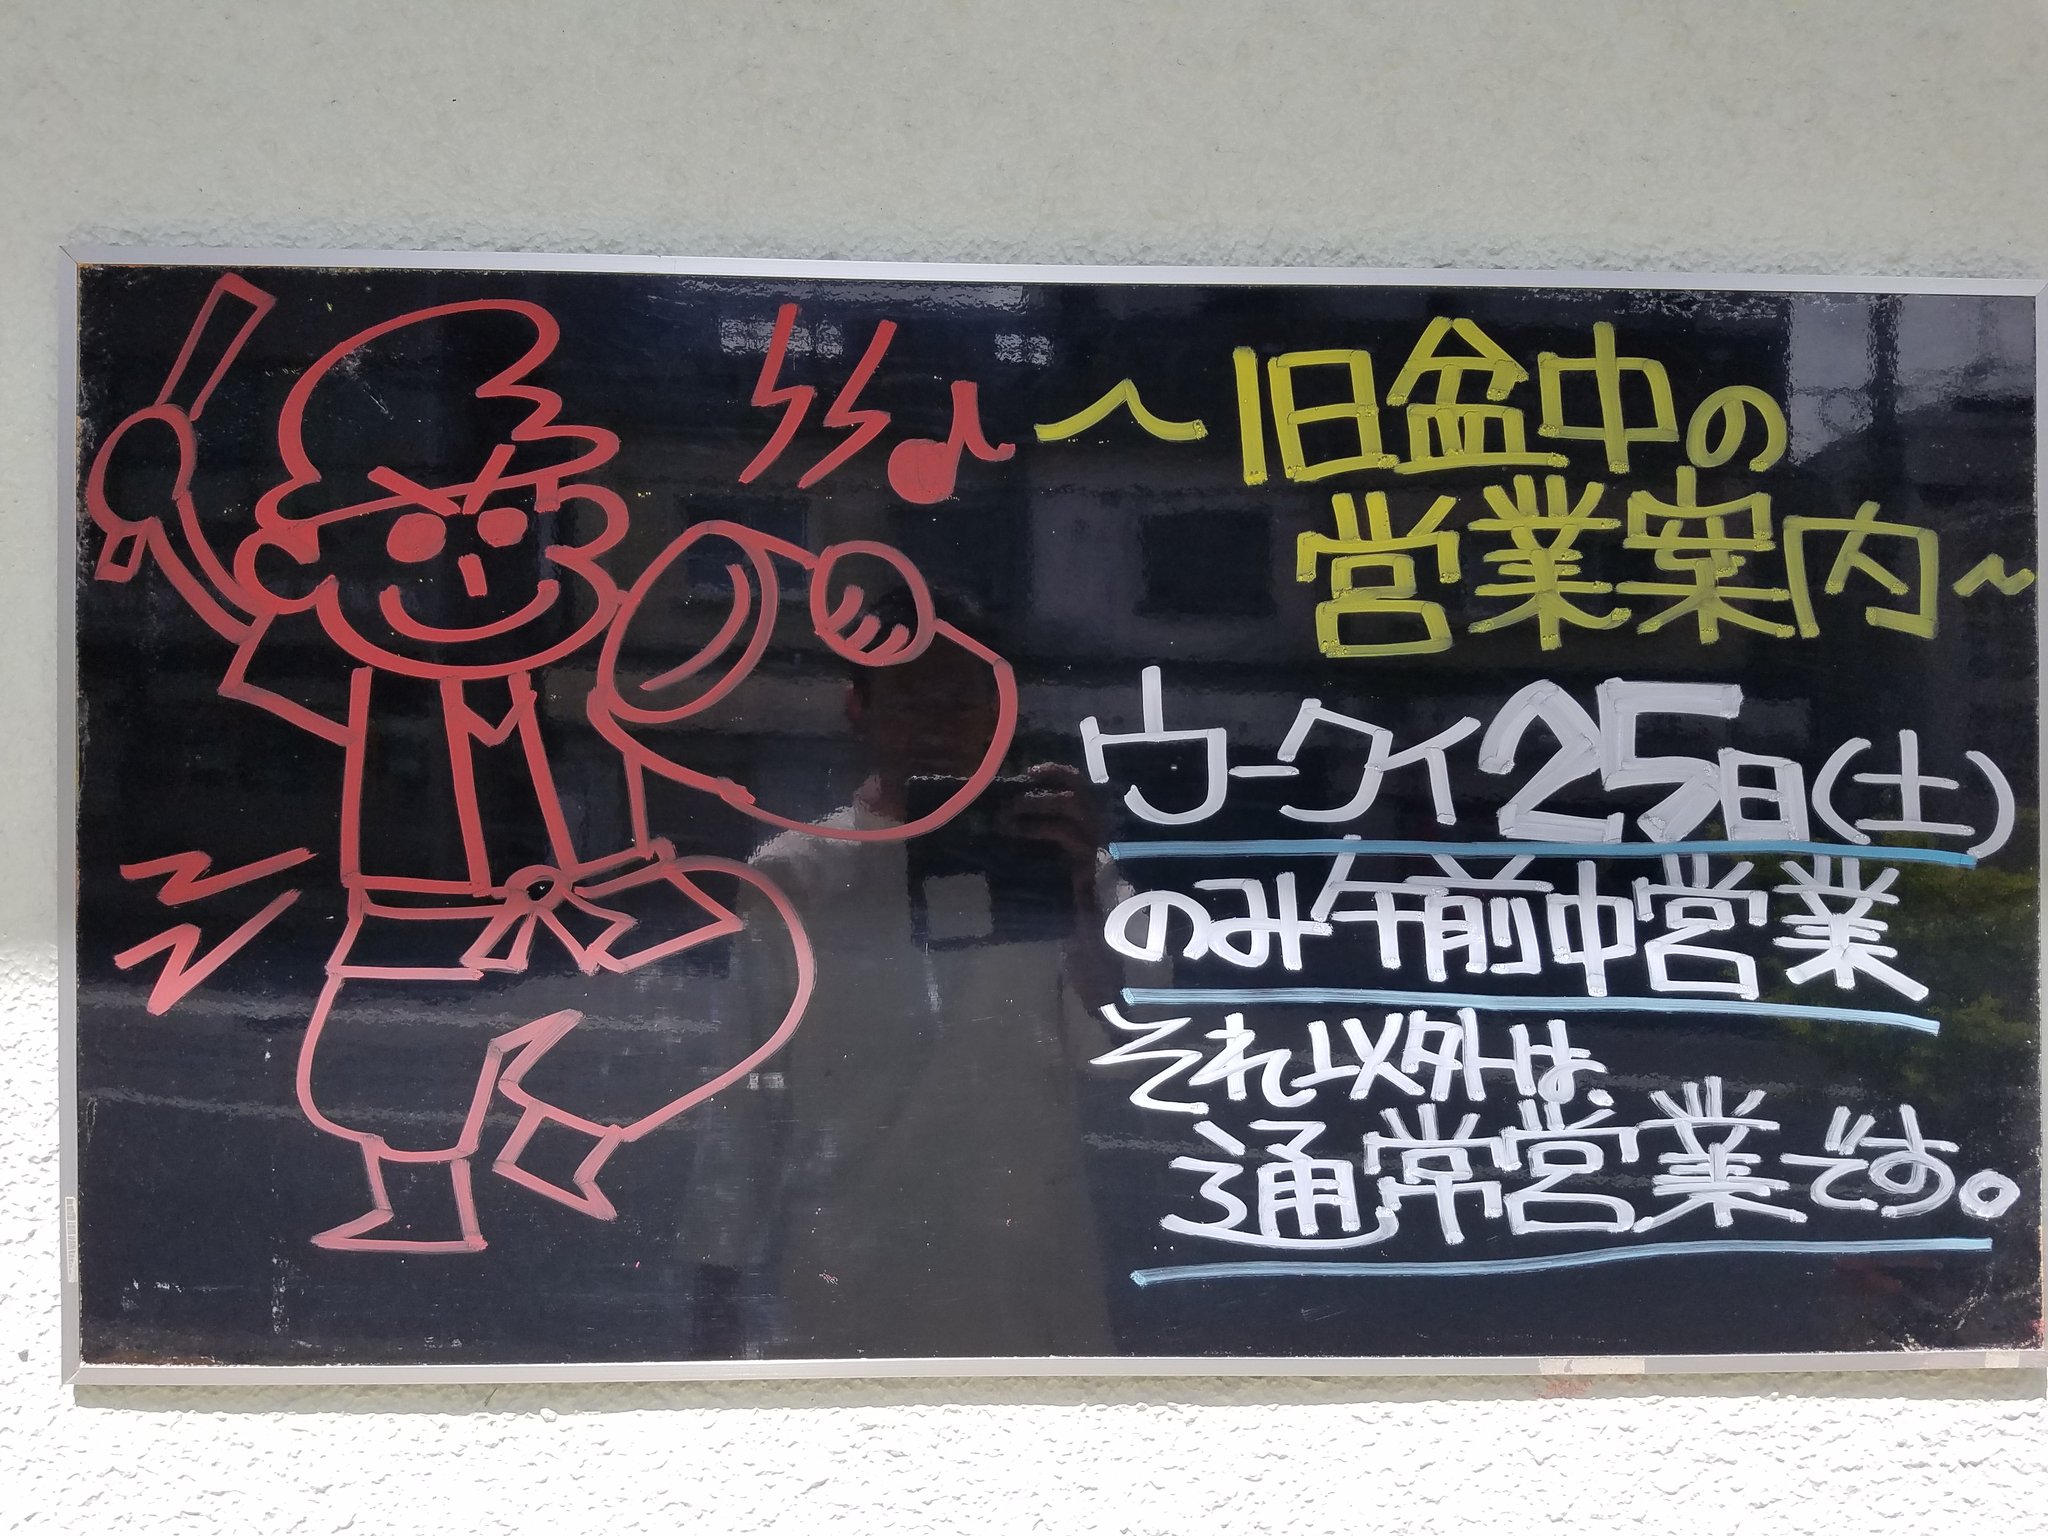 ～旧盆中の
営業案内～
ウークイ25日(土)
のみ午前中営業
それ以外は、
通常営業です。